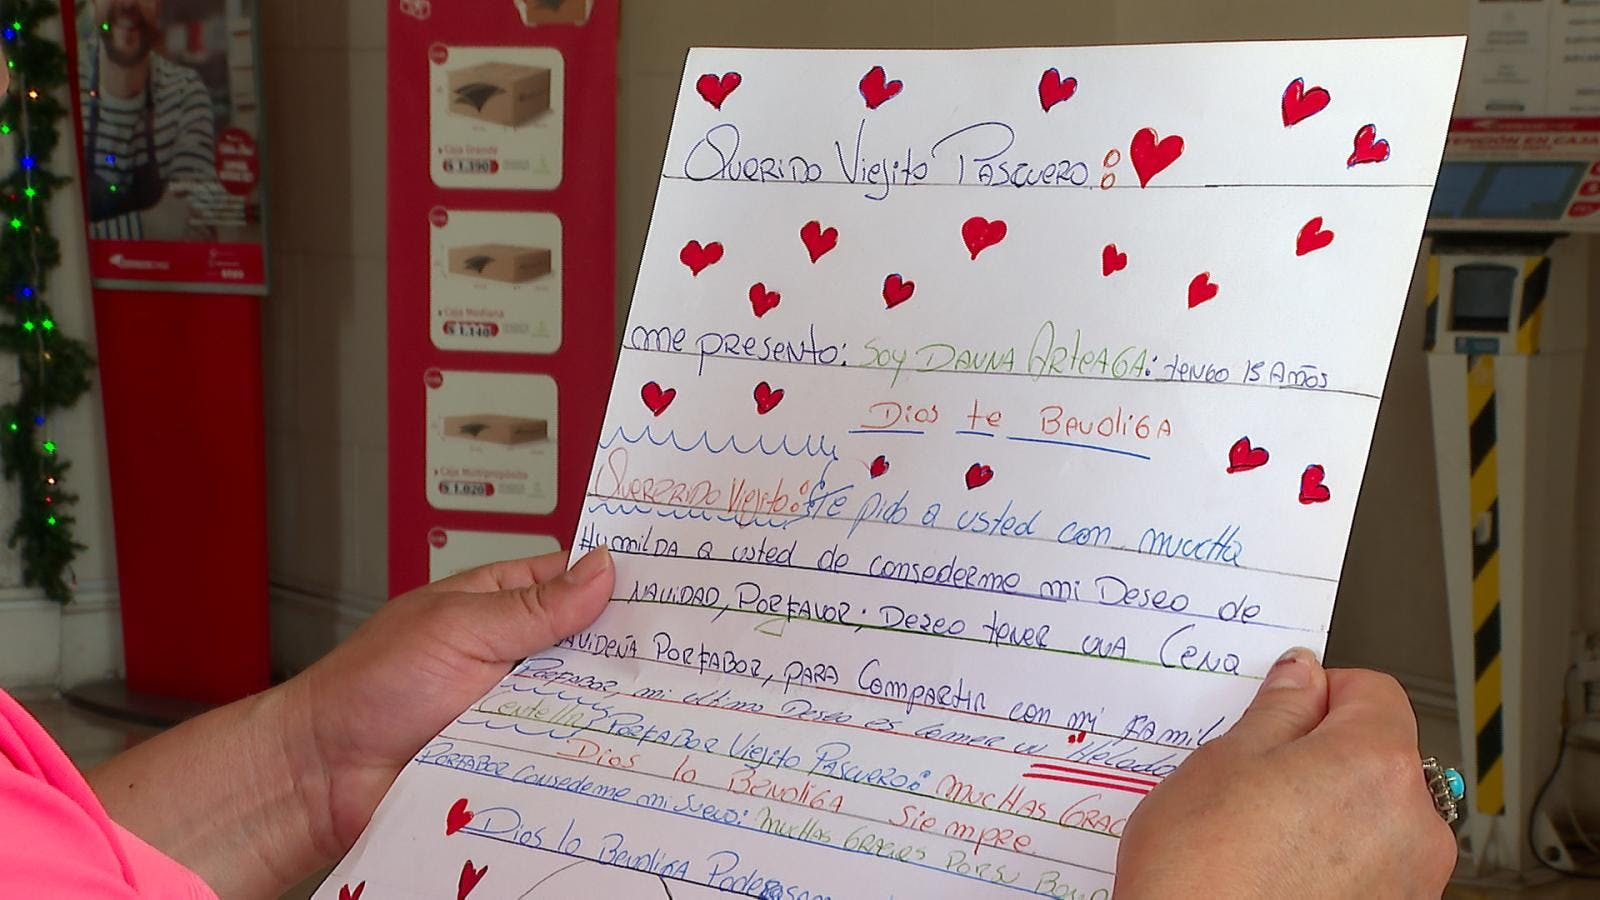 Querido Viejito Pascuero:
me presento: Soy Danna Arteaga: tengo 15 Años
Dios te Bendiga
Quererido Viejito: Te pido a usted con muucha
Humilda a usted de consederme mi Deseo de
Navidad, Porfavor; Dezeo tener una Cena
Porfabor, para Compartir con mi Famil
Porfabor, mi ultimo Deseo es comer un "Helado
Centella? Porfabor Viejito Pascuero: muchas Grac
Dios lo Bendiga Siempre
Porfabor Consedeme mi sueño: Muchas Gracies Por su Bond
Dios lo Bendiga
Caja Grande
$ 1.390
Caja Mediana
$ 1.140
Caja Multipropósito
$ 1.020
ENCIÓN EN CAJA